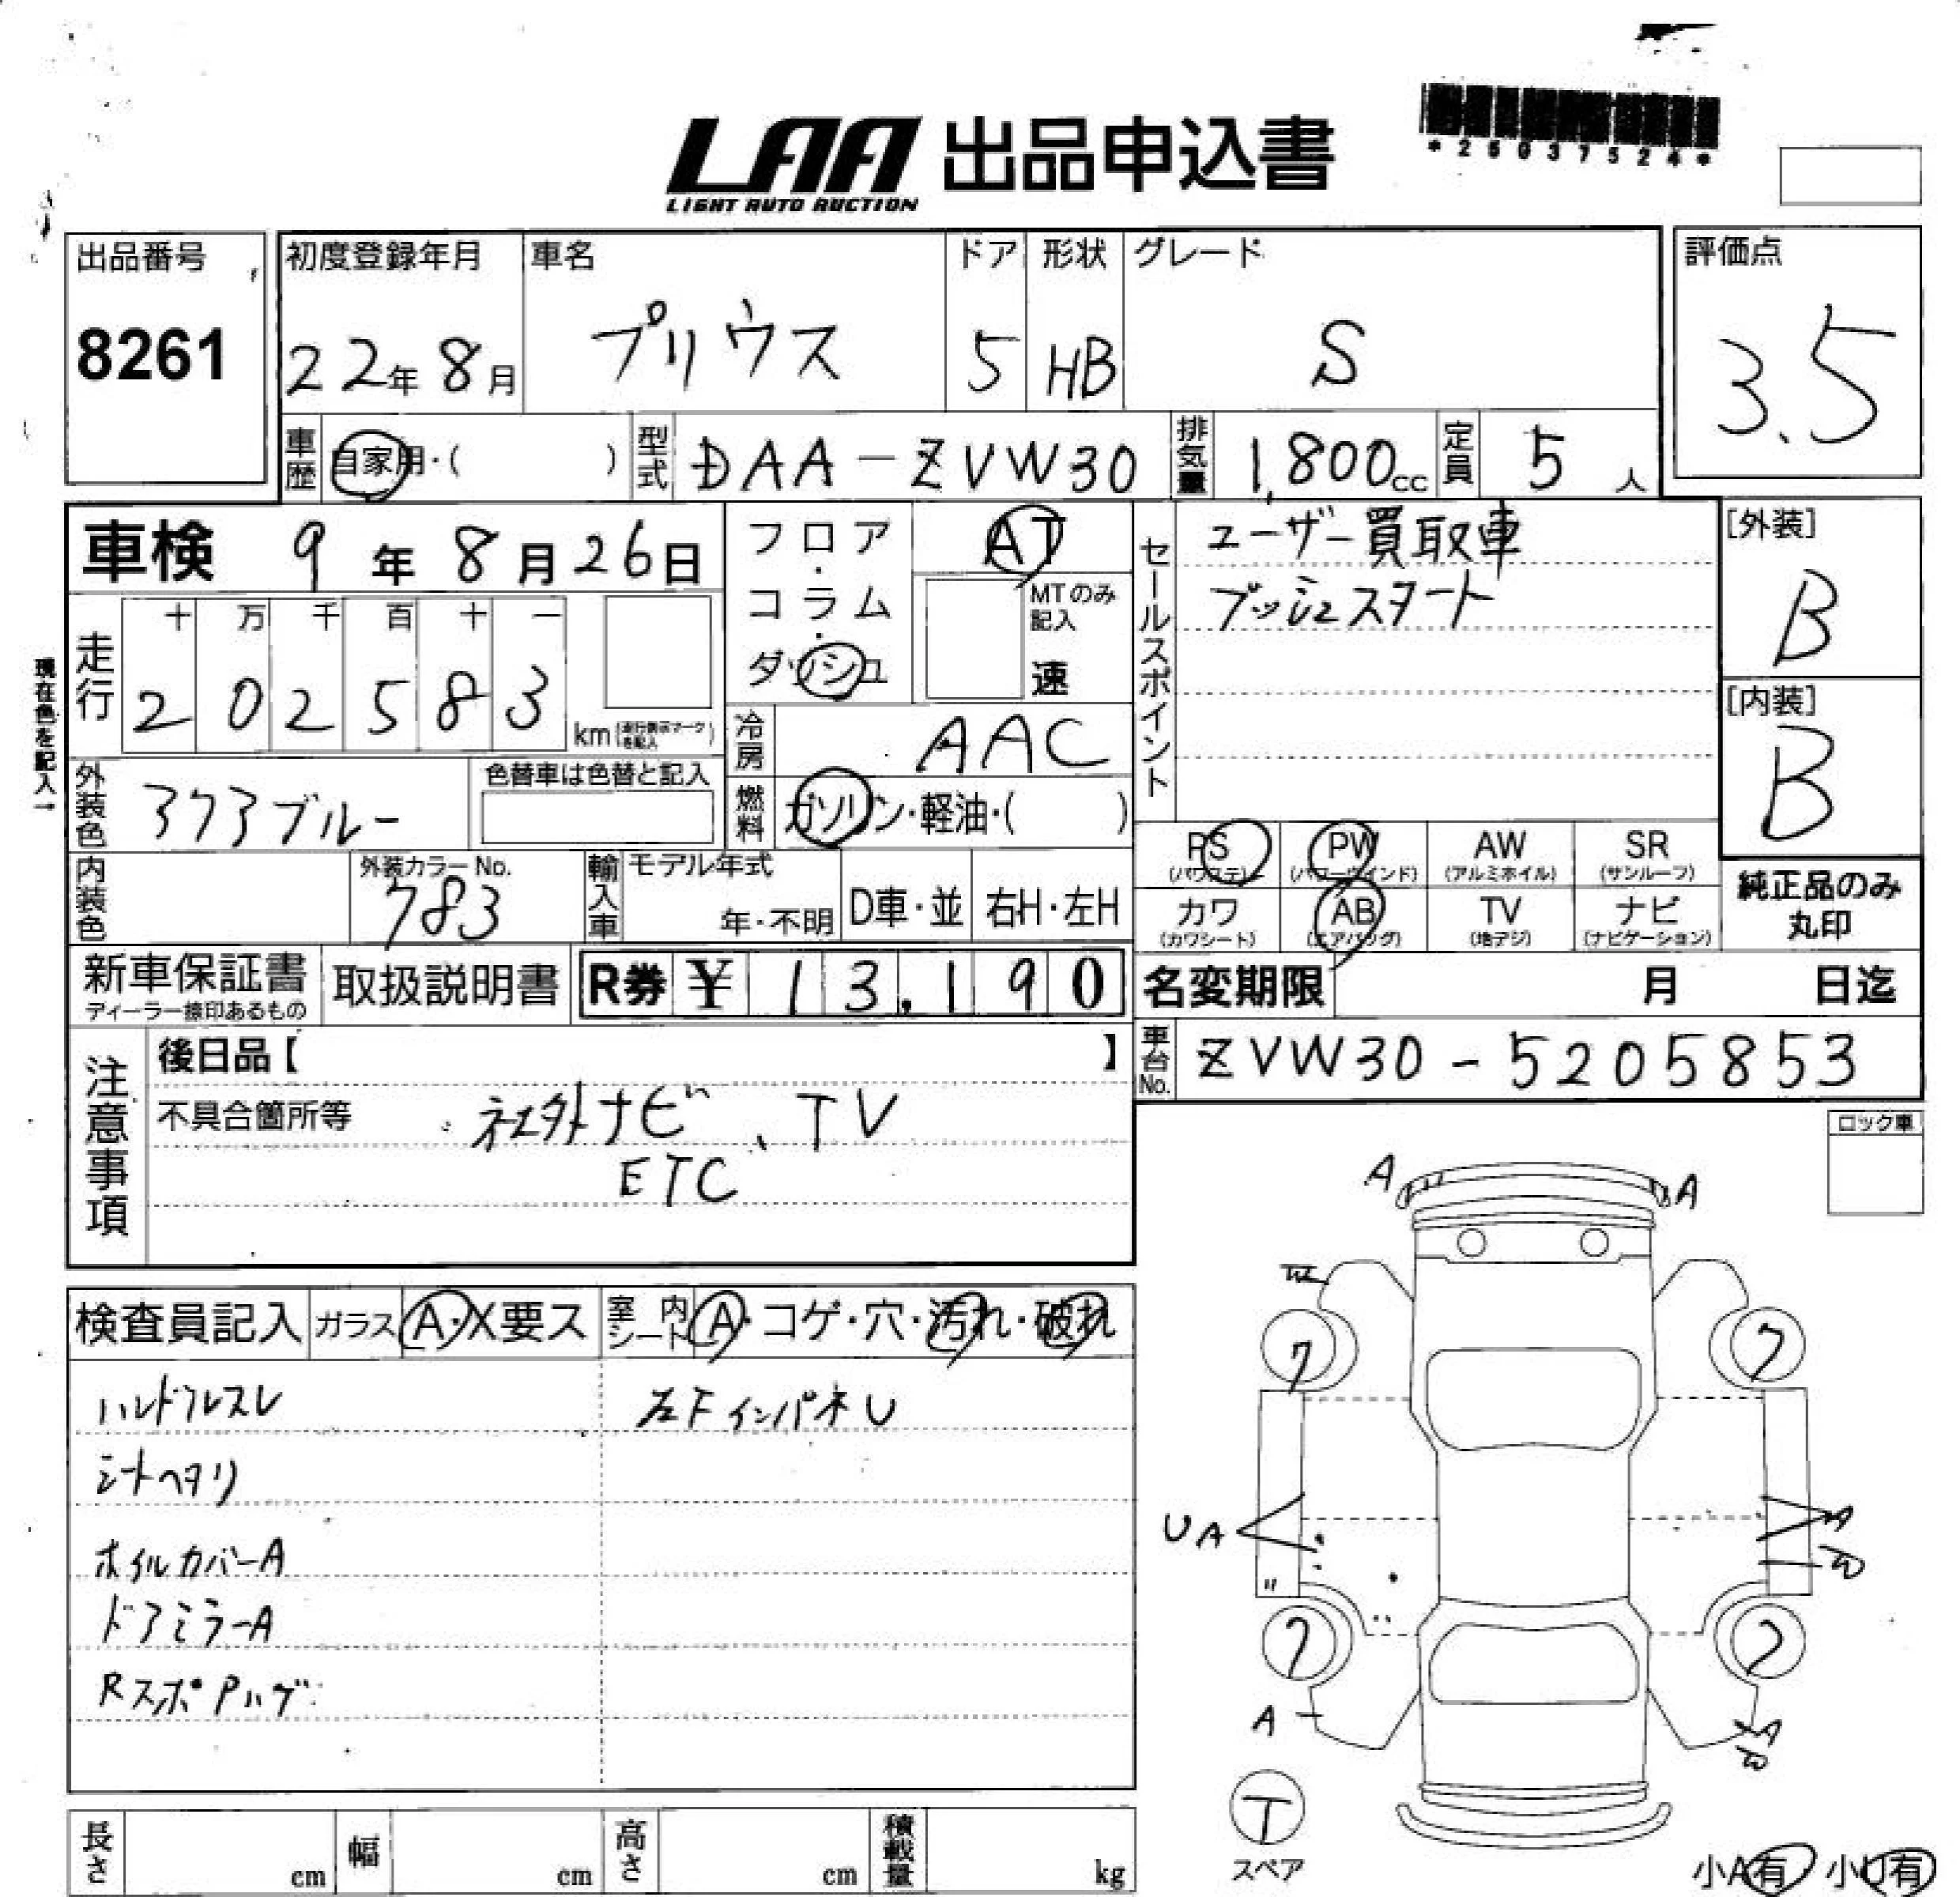 LAA 出品申込書
LIGHT AUTO AUCTION
*26037524*
出品番号
8261
初度登録年月
22年8月
車名
プリウス
ドア
5
形状
HB
グレード
S
評価点
3.5
車歴
自家用・( )
型式
DAA-ZVW30
排気量
1,800cc
定員
5人
車検 9年8月26日
フロア・コラム・ダッシュ
AT
MTのみ記入
速
セールスポイント
ユーザー買取車
プッシュスタート
[外装]
B
[内装]
B
現在色を記入→
走行
十 万 千 百 十 一
2 0 2 5 8 3
km
冷房
AAC
外装色
373ブルー
色替車は色替と記入
燃料
ガソリン・軽油・( )
PS
(パワステ)
PW
(パワーウインド)
AW
(アルミホイル)
SR
(サンルーフ)
カワ
(カワシート)
AB
(エアバッグ)
TV
(地デジ)
ナビ
(ナビゲーション)
純正品のみ
丸印
内装色
外装カラーNo.
783
輸入車
モデル年式
年・不明
D車・並
右H・左H
新車保証書
ディーラー捺印あるもの
取扱説明書
R券 ¥ 13,190
名変期限 月 日迄
車台No.
ZVW30-5205853
注意事項
後日品【 】
不具合箇所等
社外ナビ、TV
ETC
ロック車
検査員記入
ガラス A・X要ス
室内シート A・コゲ・穴・汚れ・破れ
ハンドルスレ
左FインパネU
シートヘタリ
ホイルカバーA
ドアミラーA
RスポPハゲ
A
A
7
7
UA
A
〃
7
7
A
A
T
スペア
長さ cm
幅 cm
高さ cm
積載量 kg
小A有 小U有